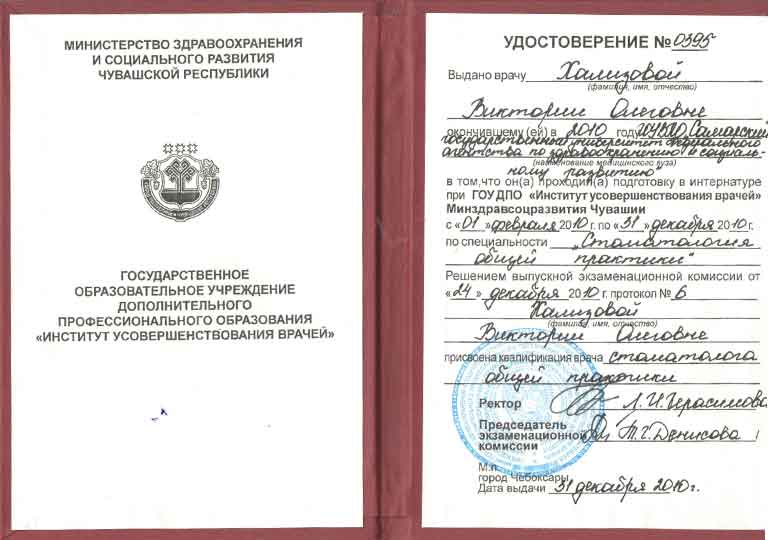 МИНИСТЕРСТВО ЗДРАВООХРАНЕНИЯ
И СОЦИАЛЬНОГО РАЗВИТИЯ
ЧУВАШСКОЙ РЕСПУБЛИКИ
ГОСУДАРСТВЕННОЕ
ОБРАЗОВАТЕЛЬНОЕ УЧРЕЖДЕНИЕ
ДОПОЛНИТЕЛЬНОГО
ПРОФЕССИОНАЛЬНОГО ОБРАЗОВАНИЯ
«ИНСТИТУТ УСОВЕРШЕНСТВОВАНИЯ ВРАЧЕЙ»
УДОСТОВЕРЕНИЕ № 0395
Выдано врачу Хализовой
(фамилия, имя, отчество)
Виктории Олеговне
окончившему (ей) в 2010 году Самарский
государственный университет федерального
агентства по здравоохранению и социаль-
(наименование медицинского вуза)
ному развитию"
в том, что он(а) проходил(а) подготовку в интернатуре
при ГОУ ДПО «Институт усовершенствования врачей»
Минздравсоцразвития Чувашии
с «01» февраля 2010 г. по «31» декабря 2010 г.
по специальности „Стоматология
общей практики"
Решением выпускной экзаменационной комиссии от
«24» декабря 2010 г. протокол № 6
Хализовой
(фамилия, имя, отчество)
Виктории Олеговне
присвоена квалификация врача стоматолога
общей практики
Ректор Л.И. Герасимова
Председатель
экзаменационной Т.Г. Денисова
комиссии
М.п.
город Чебоксары
Дата выдачи 31 декабря 2010 г.